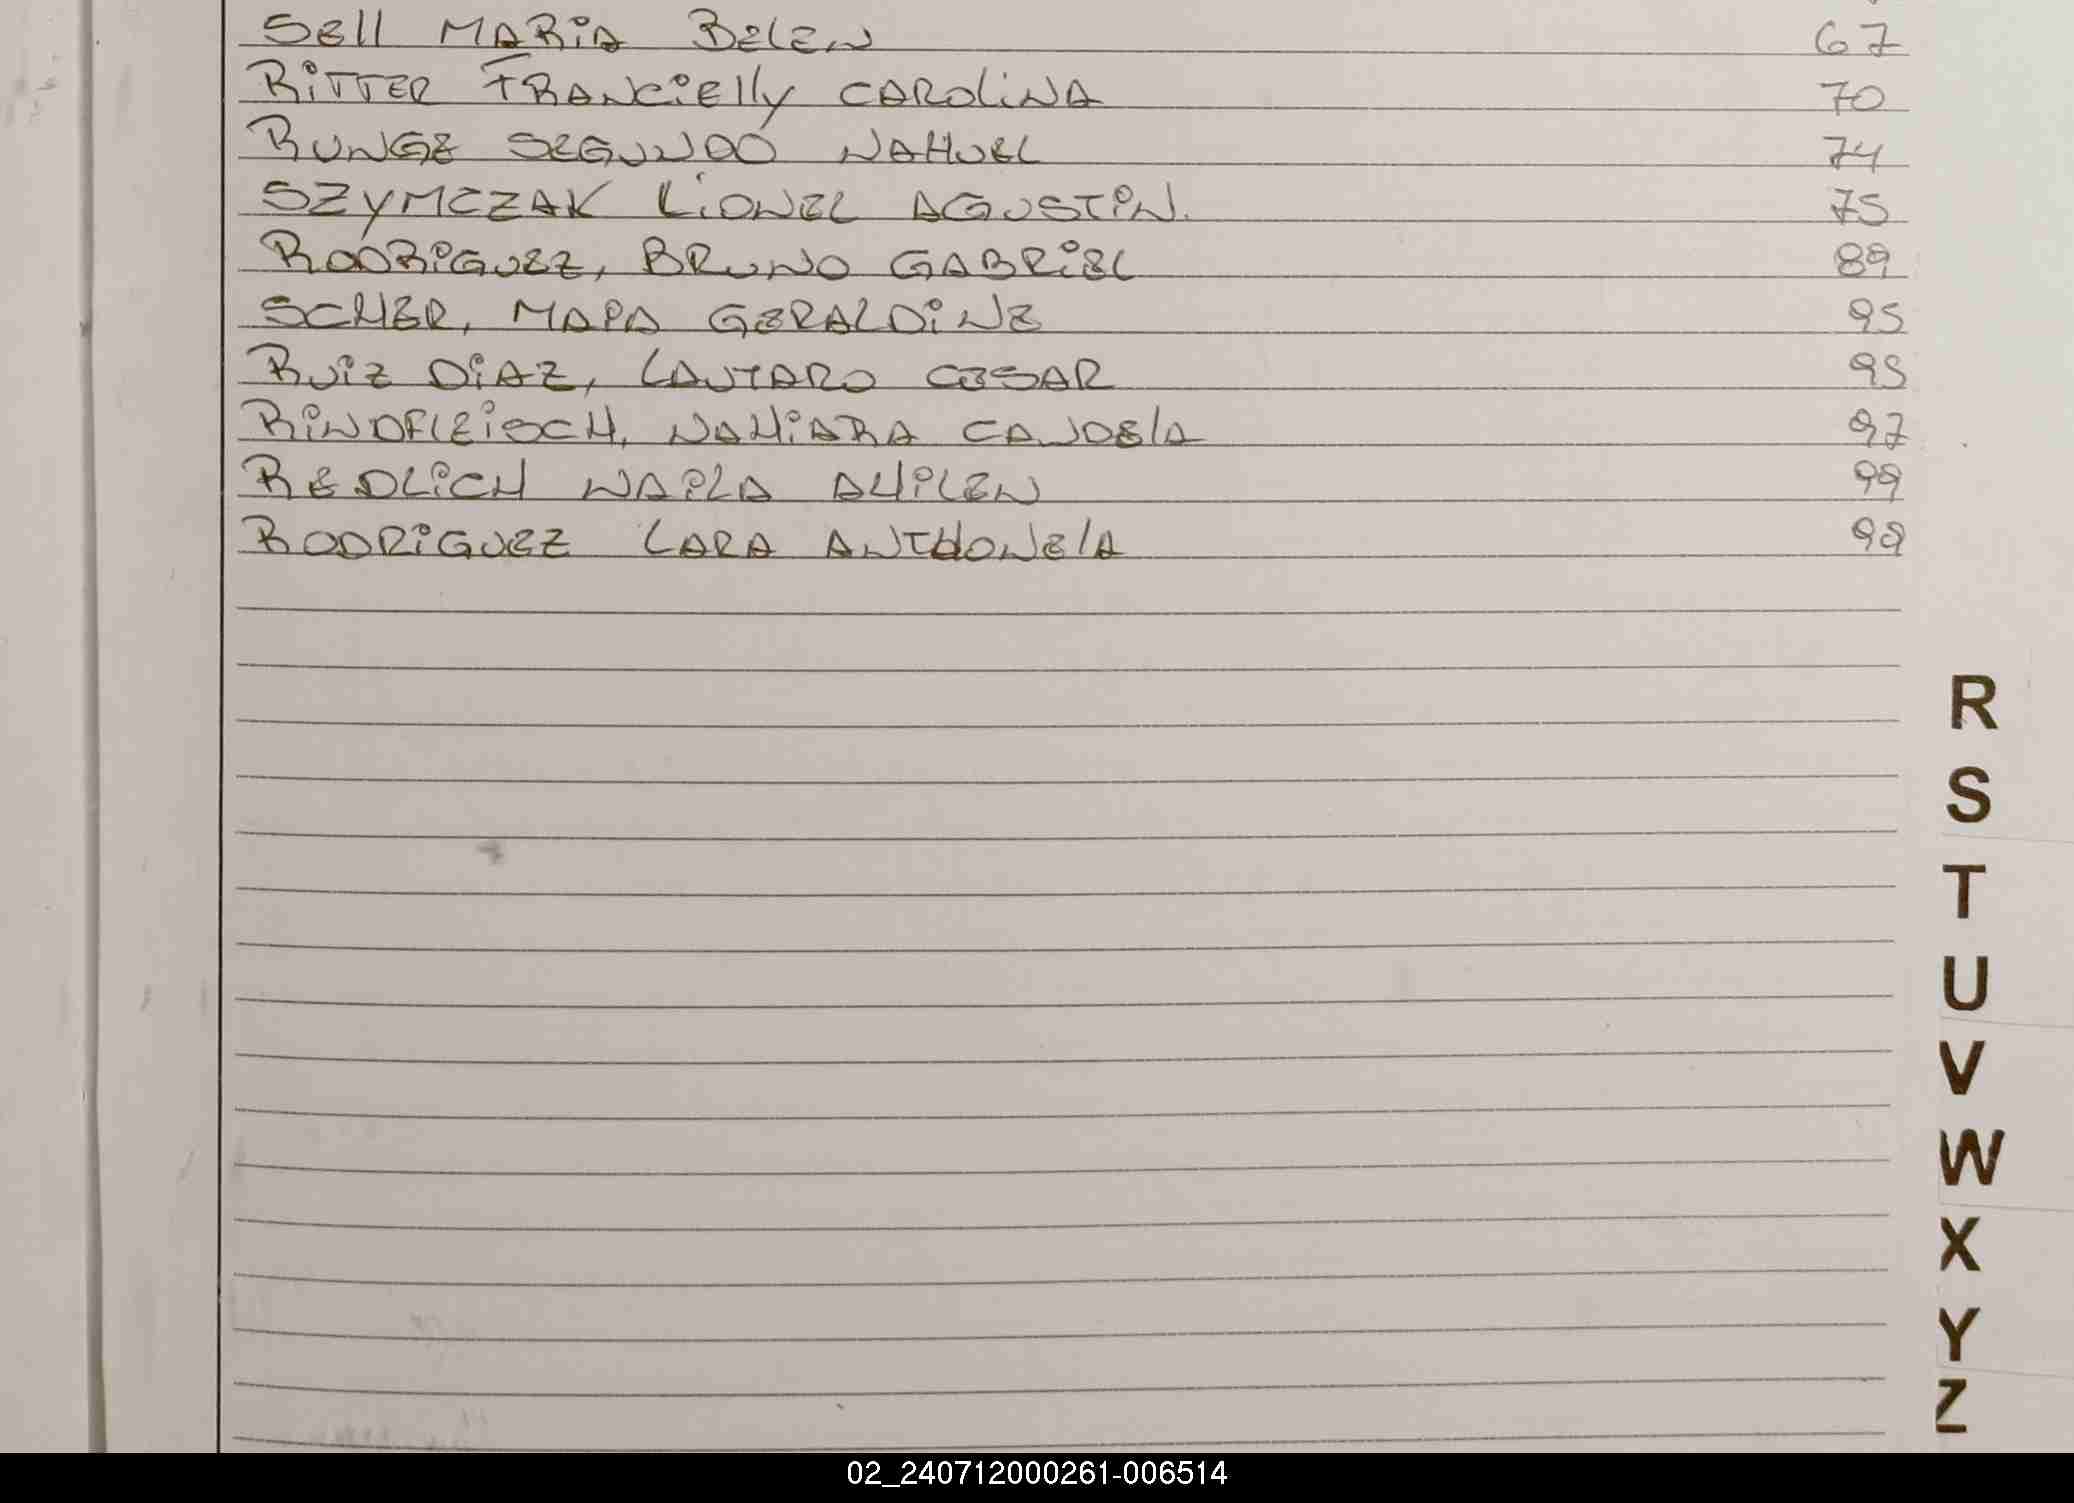 SEll MARIA BELEN 67
RITTER FRANCIElly CAROLINA 70
RUNGE SEGUNDO NAHUEL 74
SZYMCZAK LIONEL AGUSTIN. 75
RODRIGUEZ, BRUNO GABRIEL 89
SCHER, MAPA GERALDINE 95
RUIZ DIAZ, LAUTARO CESAR 95
RINDFLEISCH, NAHIARA CANDELA 97
REDLICH NAILA AHILEN 99
RODRIGUEZ LARA ANTHONELA 99
R
S
T
U
V
W
X
Y
Z
02_240712000261-006514